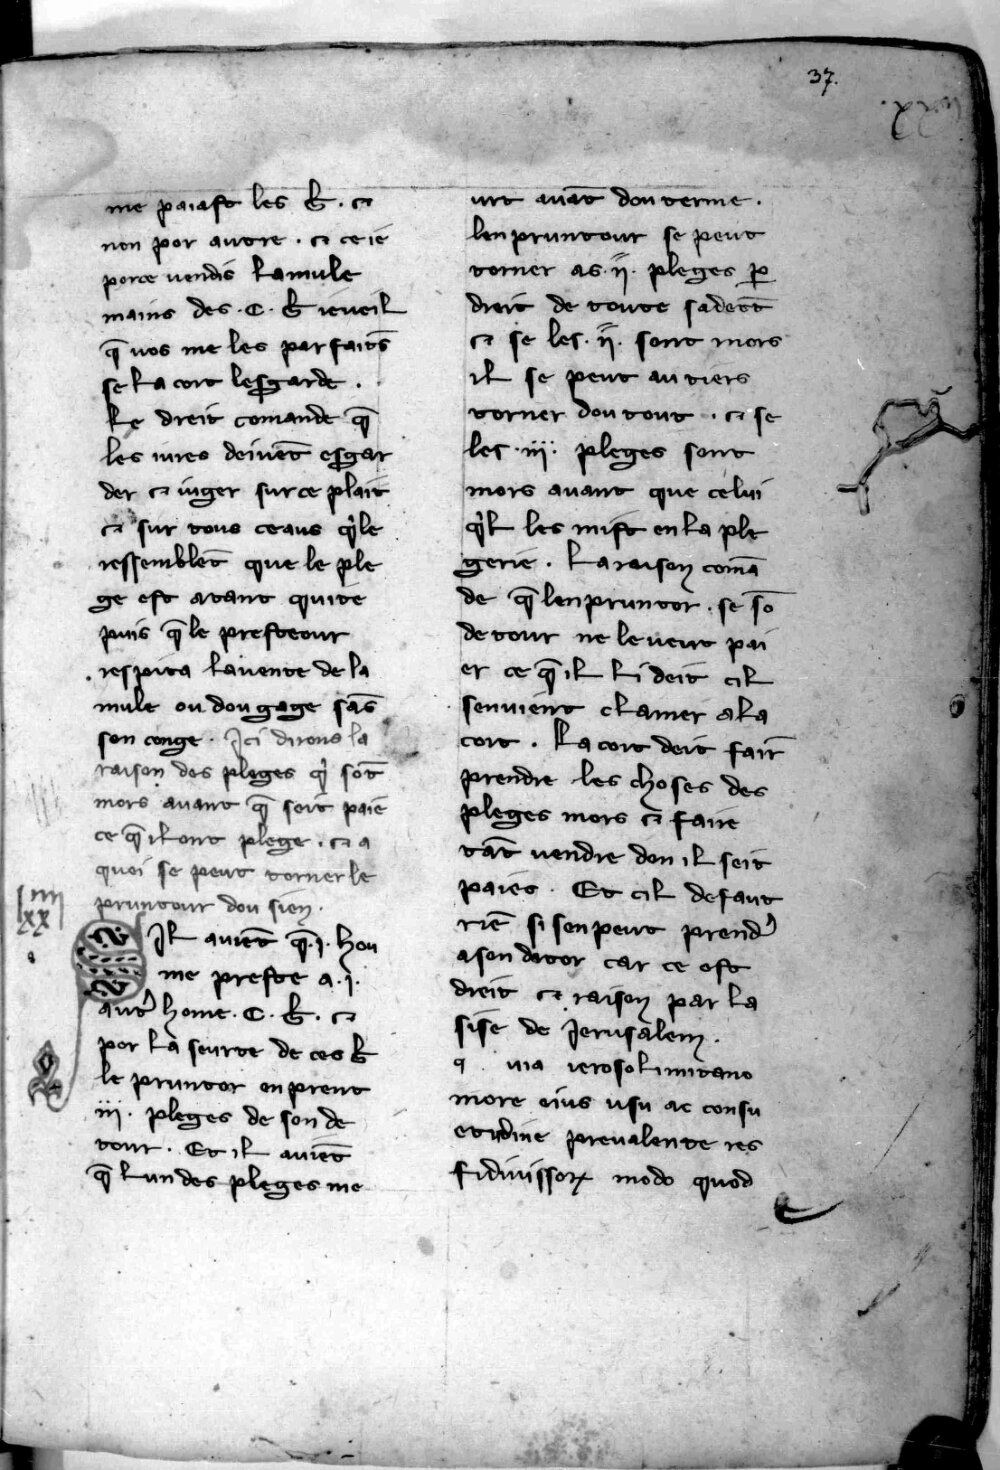 37.
me paiast les b̄. ⁊
non por autre. ⁊ ce ie
porce vendis la mule
mains des. C. b̄ ie ueil
q̄ uos me les parfaits
se la cort lesgarde.
Ke dreit comande q̄
les iures deiuēt esgar
der ⁊ iuger sur ce plait
⁊ sur tous ceaus q̇ le
ressemblēt que le ple
ge est atant quite
puis q̄ le presteour
respita la uente de la
mule ou dou gage sās
son conge. Ici dirons la
raison des pleges q̇ sōt
mors auant q̄ soit paie
ce q̄ il ont plege. ⁊ a
quoi se peut torner le
pruntour dou sien.
IIII
XX
S Il auiēt q̄. i. hou
me preste a. i.
aut̾ home. C. b̄. ⁊
por la seurte de ces b̄
le pruntor en prent
iij. pleges de son de
tour. Et il auiēt
q̄ lun des pleges me
urt auāt dou terme.
lenpruntour se peut
torner as. ij. pleges ꝑ
dreit de toute sa dett̄
⁊ se les. ij. sont mors
il se peut au tiers
torner dou tout. ⁊ se
les. iij. pleges sont
mors auant que celui
q̇l les mist en la ple
gerie. La raison comā
de q̄ lenpruntor. se sō
detour ne le ueut pai
er ce q̄ il li deit cil
senuient clamer a la
cort. La cort deit fair̄
prendre les choses des
pleges mors ⁊ faire
tāt vendre don il seit
paies. Et cil defaut
riē si sen peut prend̾
a son detor car ce est
dreit ⁊ raison par la
sise de Jerusalem.
q uia ierosolimitano
more eius usu ac consu
etudine preualente res
fidiiussoꝝ modo quod